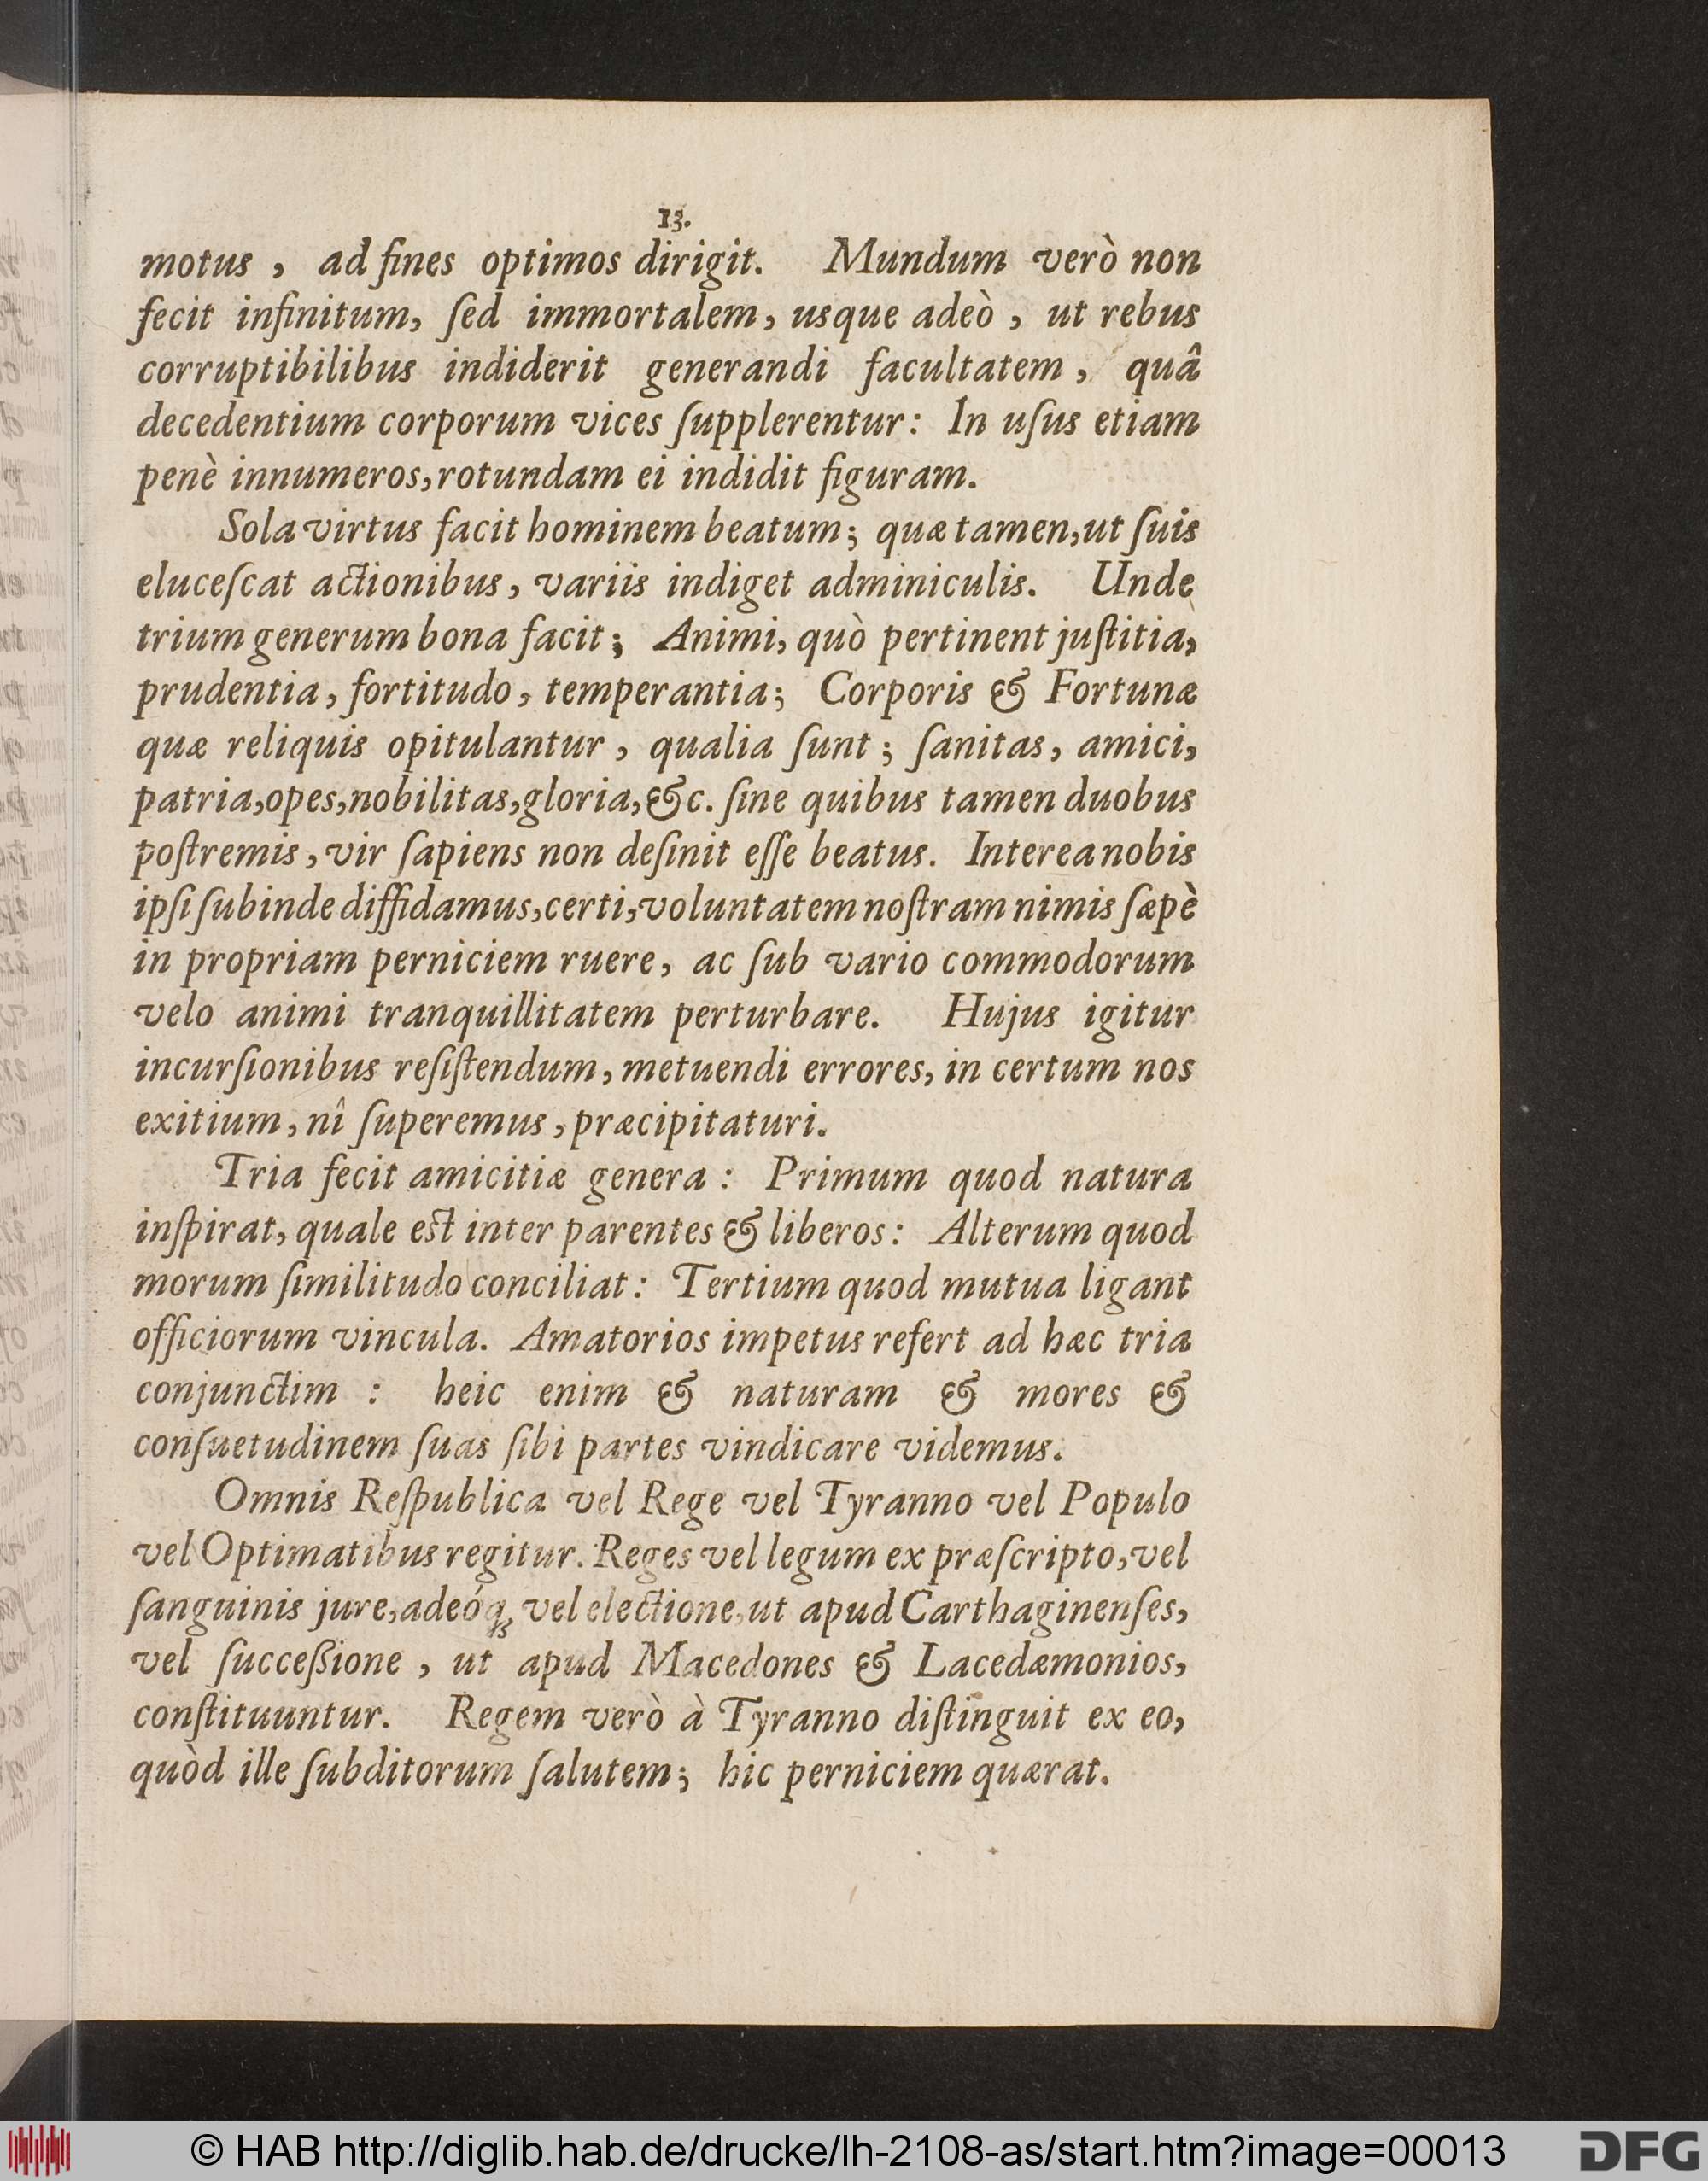 13.
motus , ad fines optimos dirigit. Mundum verò non
fecit infinitum, ſed immortalem, usque adeò , ut rebus
corruptibilibus indiderit generandi facultatem , quâ
decedentium corporum vices ſupplerentur: In uſus etiam
penè innumeros,rotundam ei indidit figuram.
Sola virtus facit hominem beatum; quæ tamen,ut ſuis
eluceſcat actionibus, variis indiget adminiculis. Unde
trium generum bona facit; Animi, quò pertinent juſtitia,
prudentia, fortitudo, temperantia; Corporis & Fortunæ
quæ reliquis opitulantur , qualia ſunt ; ſanitas, amici,
patria,opes,nobilitas,gloria,&c. ſine quibus tamen duobus
poſtremis, vir ſapiens non deſinit eſſe beatus. Interea nobis
ipſi ſubinde diffidamus,certi,voluntatem noſtram nimis ſæpè
in propriam perniciem ruere, ac ſub vario commodorum
velo animi tranquillitatem perturbare. Hujus igitur
incurſionibus reſiſtendum, metuendi errores, in certum nos
exitium, nî ſuperemus, præcipitaturi.
Tria fecit amicitiæ genera : Primum quod natura
inſpirat, quale est inter parentes & liberos: Alterum quod
morum ſimilitudo conciliat: Tertium quod mutua ligant
officiorum vincula. Amatorios impetus refert ad hæc tria
conjunctim : heic enim & naturam & mores &
conſuetudinem ſuas ſibi partes vindicare videmus.
Omnis Reſpublica vel Rege vel Tyranno vel Populo
vel Optimatibus regitur. Reges vel legum ex præſcripto,vel
ſanguinis jure,adeóq; vel electione,ut apud Carthaginenſes,
vel ſucceßione , ut apud Macedones & Lacedæmonios,
conſtituuntur. Regem verò à Tyranno diſtinguit ex eo,
quòd ille ſubditorum ſalutem; hic perniciem quærat.
© HAB http://diglib.hab.de/drucke/lh-2108-as/start.htm?image=00013
DFG